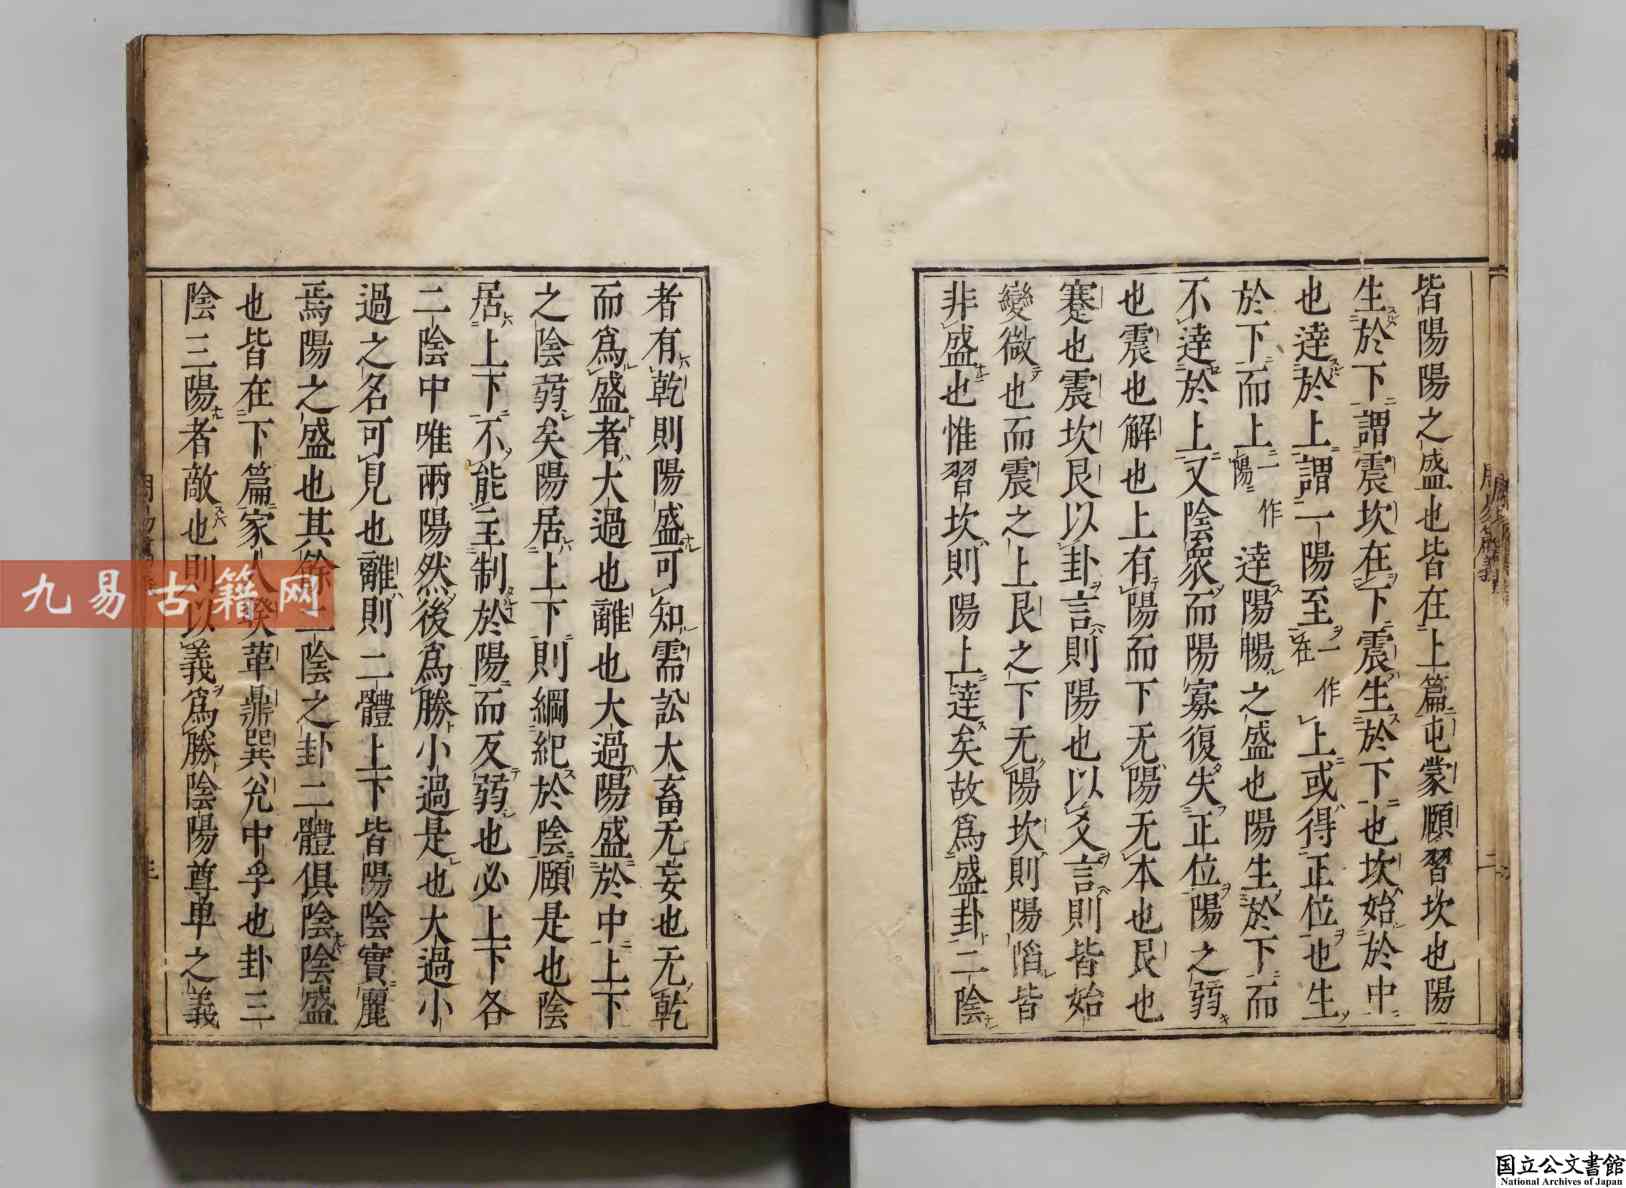 皆陽陽之盛也皆在上篇屯蒙頤習坎也陽
生於下謂震坎在下震生於下也坎始於中
也達於上謂一陽至一作在上或得正位也生
於下而上一作陽達陽暢之盛也陽生於下而
不達於上又陰衆而陽寡復失正位陽之弱
也震也解也上有陽而下无陽无本也艮也
蹇也震坎艮以卦言則陽也以爻言則皆始
變微也而震之上艮之下无陽坎則陽陷皆
非盛也惟習坎則陽上達矣故爲盛卦二陰
者有乾則陽盛可知需訟大畜无妄也无乾
而爲盛者大過也離也大過陽盛於中上下
之陰弱矣陽居上下則綱紀於陰頤是也陰
居上下不能主制於陽而反弱也必上下各
二陰中唯兩陽然後爲勝小過是也大過小
過之名可見也離則二體上下皆陽陰實麗
焉陽之盛也其餘二陰之卦二體俱陰陰盛
也皆在下篇家人睽革鼎巽兌中孚也卦三
陰三陽者敵也則以義爲勝陰陽尊卑之義
九易古籍网
国立公文書館
National Archives of Japan